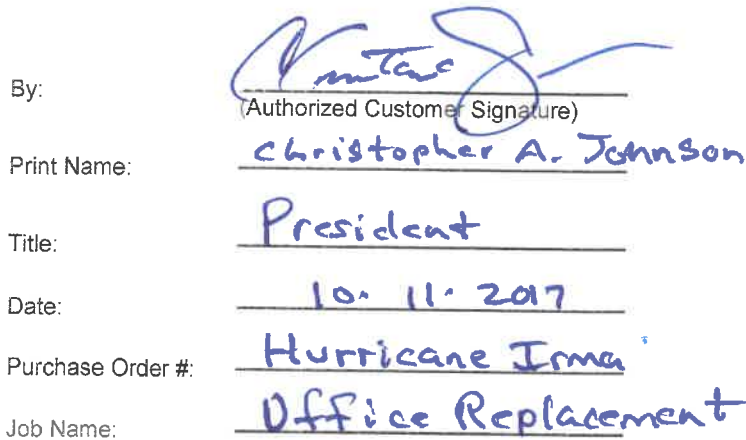 By:
(Authorized Customer Signature)
Print Name: Christopher A. Johnson
Title: President
Date: 10. 11. 2017
Purchase Order #: Hurricane Irma
Job Name: Office Replacement